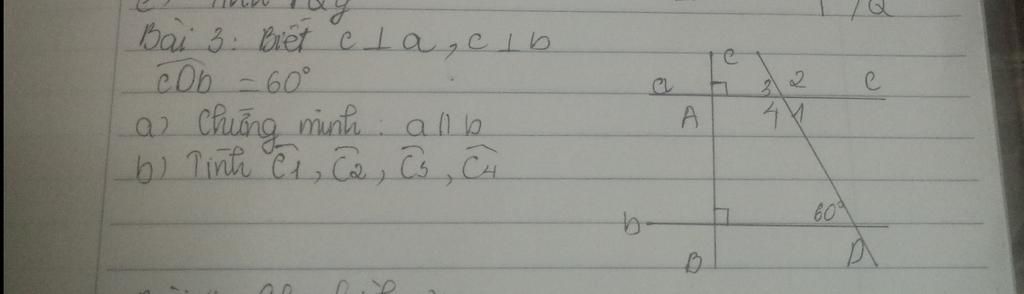 Bài 3: Biết c⊥a, c⊥b
cDb = 60°
a) Chứng minh: a//b
b) Tính C1, C2, C3, C4
c
a 3 2 C
A 4 1
b 60°
B D